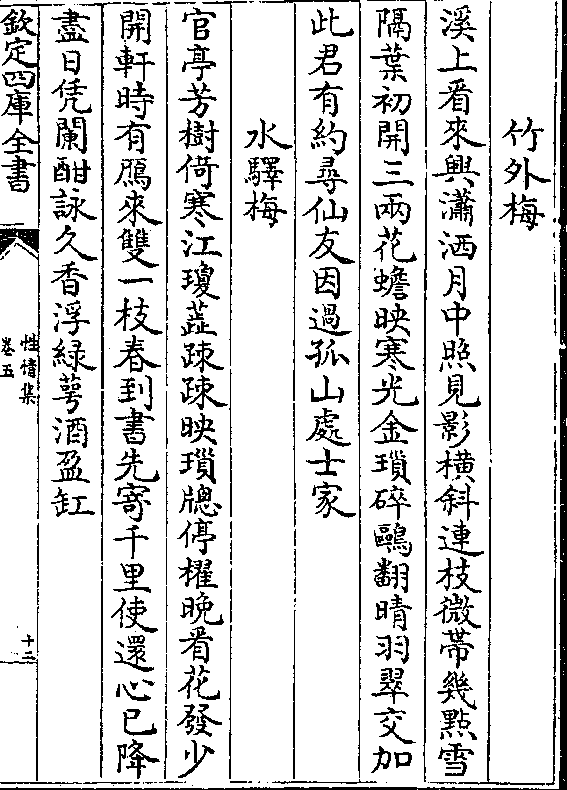 竹外梅
溪上看來興瀟洒月中照見影橫斜連枝微帶幾㸃雪
隔葉初開三兩花蟾映寒光金瑣碎鷗翻晴羽翠交加
此君有約尋仙友因過孤山處士家
水驛梅
官亭芳樹倚寒江瓊蕋疎疎映瑣牕停櫂晚看花發少
開軒時有鴈來雙一枝春到書先寄千里使還心已降
盡日凭闌酣詠久香浮緑萼酒盈缸
欽定四庫全書
性情集
卷五
十三